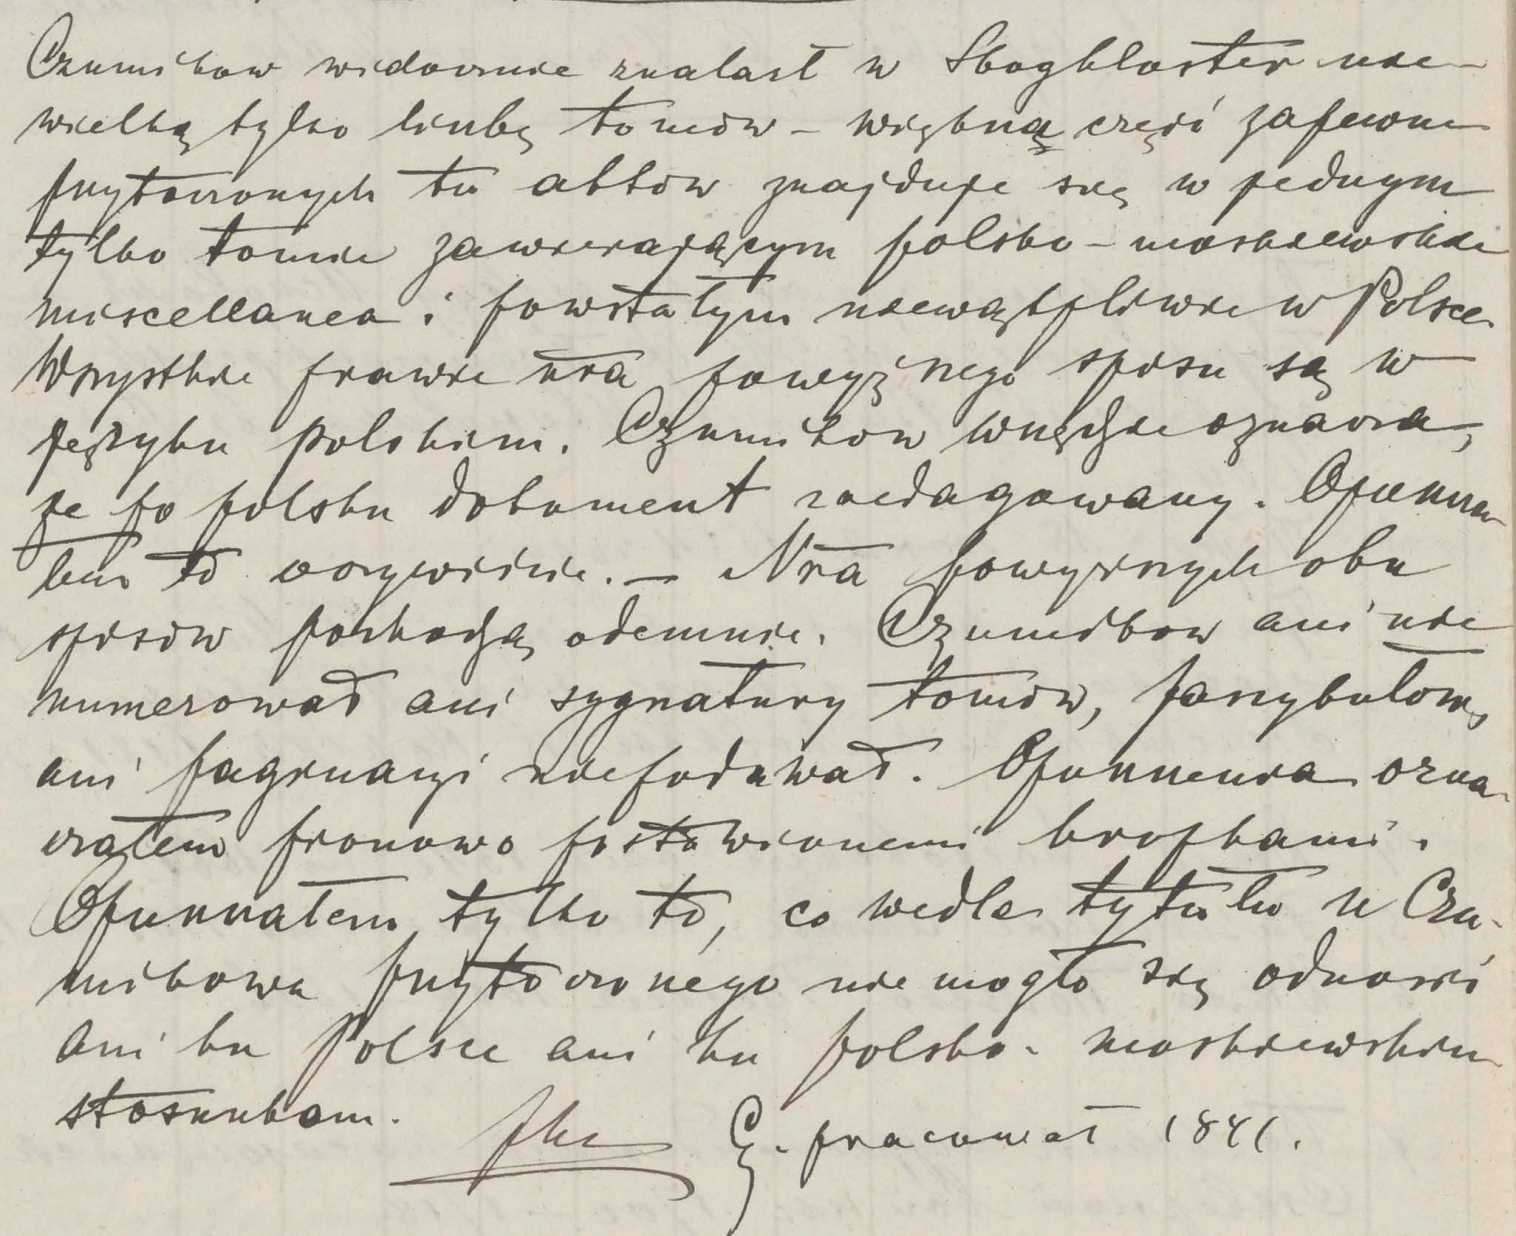 Czumikow widocznie znalazł w Skogkloster nie-
wielką tylko liczbę tomów – większą część zapewne
przytoczonych tu aktów znajduje się w jednym
tylko tomie zawierającym polsko-moskiewskie
miscellanea i powstałym niewątpliwie w Polsce.
Wszystkie prawie nra powyższego spisu są w
języku polskim. Czumikow wszędzie oznacza,
że po polsku dokument zredagowany. Opuściłem
to oczywiście. – Nra powyższych obu
spisów pochodzą odemnie. Czumikow ani nie
numerował ani sygnatury tomów, fascykułów,
ani paginacyi nie podawał. Opuszczenia ozna-
czałem pionowo postawionemi kropkami.
Opuszczałem tylko to, co wedle tytułu u Czu-
mikowa przytoczonego nie mogło się odnosić
ani ku Polsce ani ku polsko-moskiewskim
stosunkom.
Cz. pracował 1841.